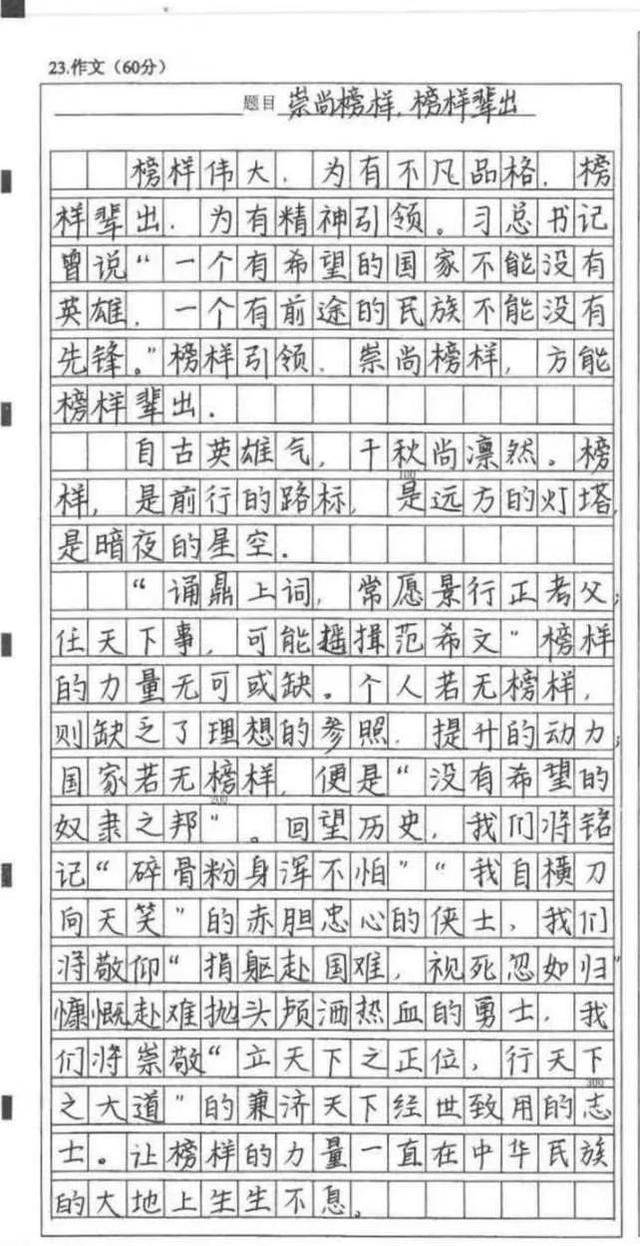 23.作文（60分）
题目 崇尚榜样，榜样辈出
榜样伟大，为有不凡品格，榜
样辈出，为有精神引领。习总书记
曾说“一个有希望的国家不能没有
英雄，一个有前途的民族不能没有
先锋。”榜样引领，崇尚榜样，方能
榜样辈出．
自古英雄气，千秋尚凛然。榜
100
样，是前行的路标，是远方的灯塔，
是暗夜的星空．
“诵鼎上词，常愿景行正考父；
任天下事，可能揖范希文”榜样
的力量无可或缺。个人若无榜样，
则缺乏了理想的参照，提升的动力；
国家若无榜样，便是“没有希望的
200
奴隶之邦”。回望历史，我们将铭
记“碎骨粉身浑不怕”“我自横刀
向天笑”的赤胆忠心的侠士，我们
将敬仰“捐躯赴国难，视死忽如归”
慷慨赴难抛头颅洒热血的勇士，我
们将崇敬“立天下之正位，行天下
300
之大道”的兼济天下经世致用的志
士。让榜样的力量一直在中华民族
的大地上生生不息。